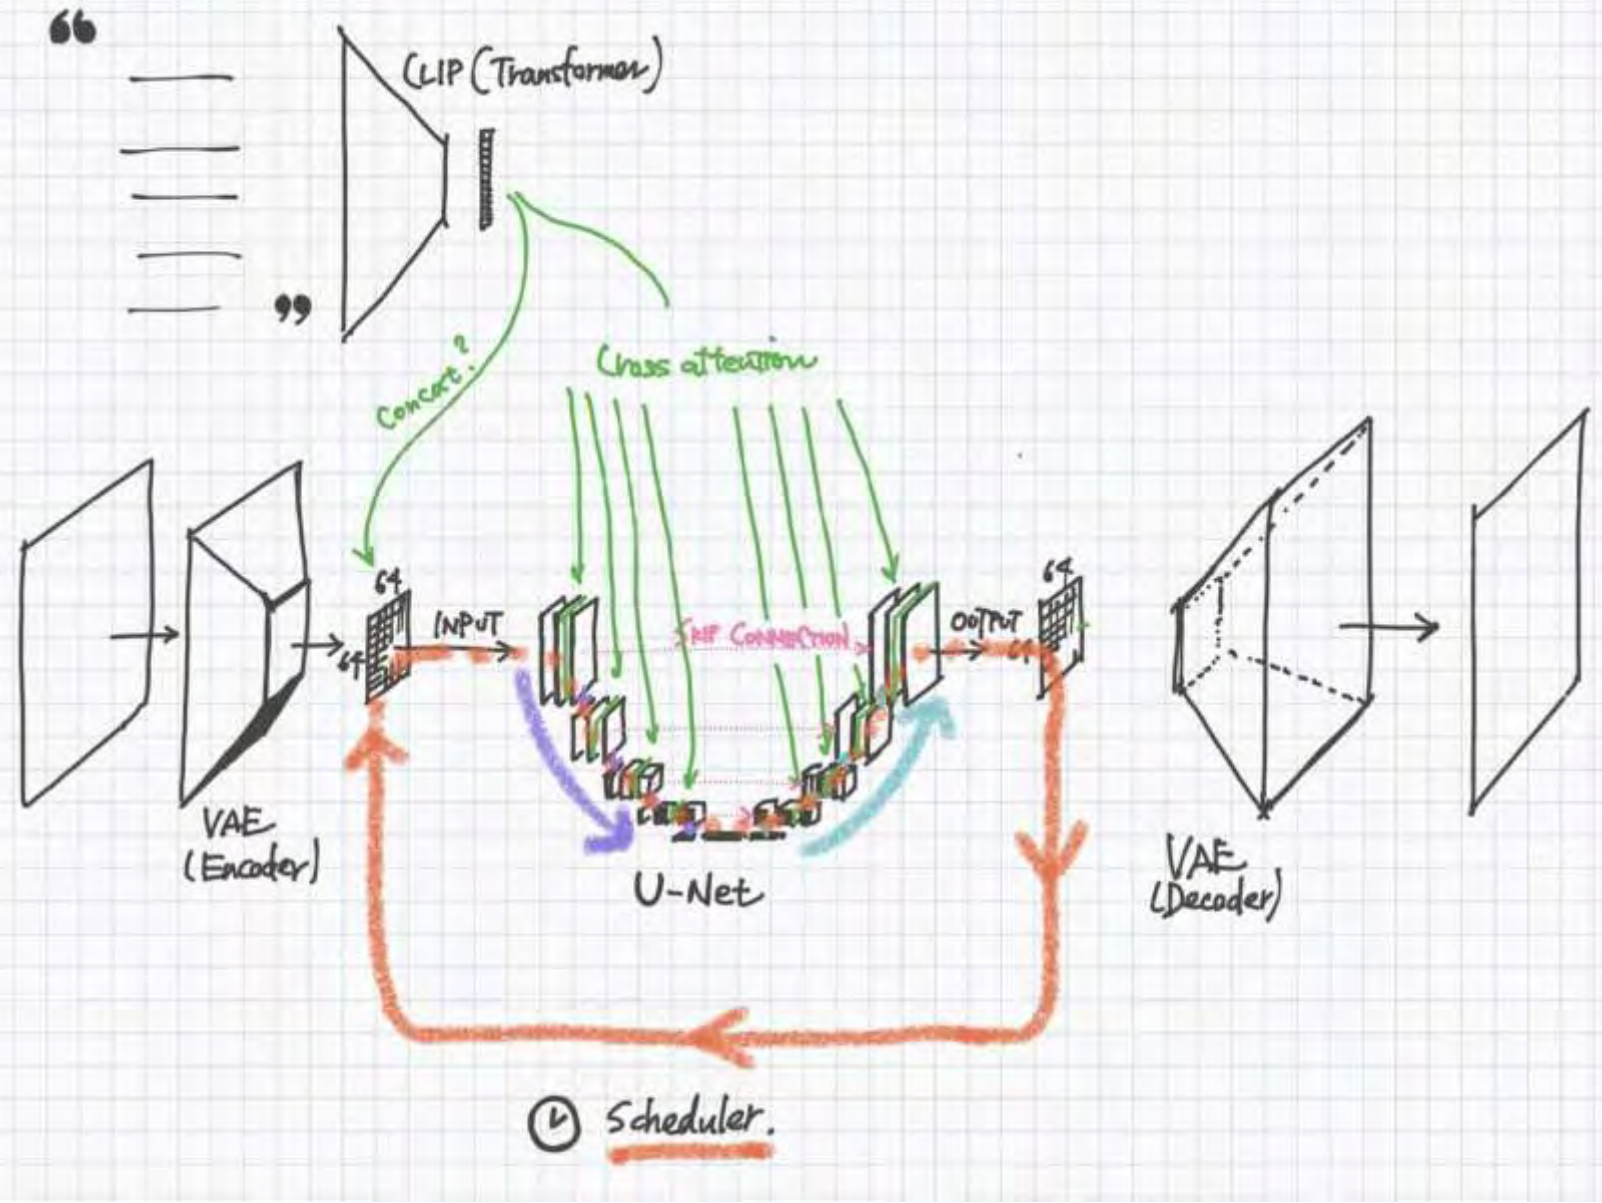 “
CLIP (Transformer)
”
Concat.?
Cross attention
64
64
INPUT
SKIP CONNECTION
OUTPUT
64
64
VAE
(Encoder)
U-Net
VAE
(Decoder)
Scheduler.